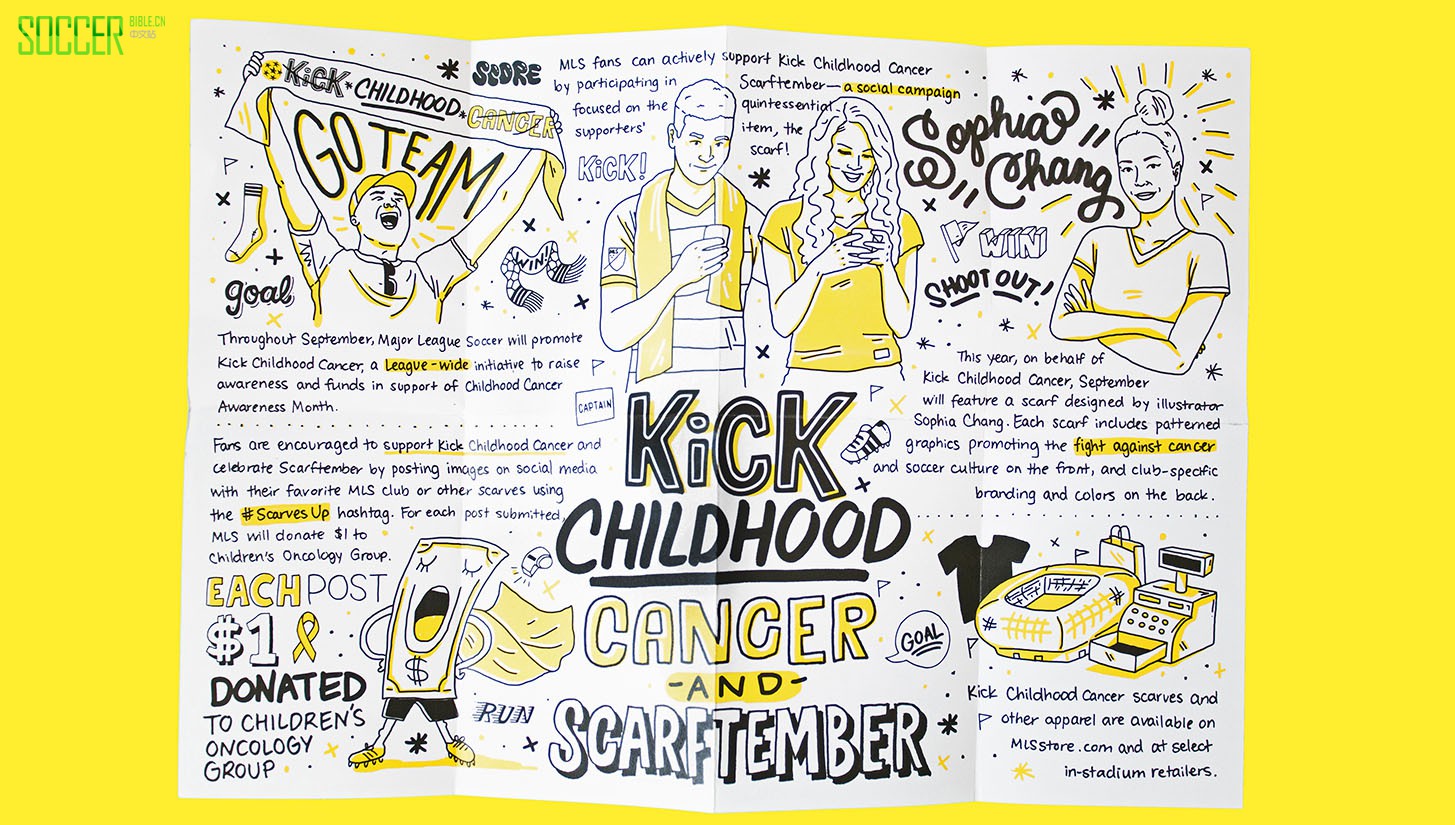 SOCCER BIBLE.CN
中文站
KiCK * CHILDHOOD * CANCER
GO TEAM
goal
SCORE
MLS fans can actively support Kick Childhood Cancer
by participating in Scarftember— a social campaign
focused on the quintessential
supporters' item, the
scarf!
KiCK!
WIN!
MLS
Sophia
Chang
WIN
SHOOT OUT!
Throughout September, Major League Soccer will promote
Kick Childhood Cancer, a League-wide initiative to raise
awareness and funds in support of Childhood Cancer
Awareness Month.
CAPTAIN
Fans are encouraged to support Kick Childhood Cancer and
celebrate Scarftember by posting images on social media
with their favorite MLS club or other scarves using
the #ScarvesUp hashtag. For each post submitted,
MLS will donate $1 to
Children's Oncology Group.
EACH POST
$1
DONATED
TO CHILDREN'S
ONCOLOGY
GROUP
$
RUN
KiCK
CHILDHOOD
CANCER
-AND-
SCARFTEMBER
This year, on behalf of
Kick Childhood Cancer, September
will feature a scarf designed by illustrator
Sophia Chang. Each scarf includes patterned
graphics promoting the fight against cancer
and soccer culture on the front, and club-specific
branding and colors on the back.
GOAL
Kick Childhood Cancer scarves and
other apparel are available on
MLSstore.com and at select
in-stadium retailers.